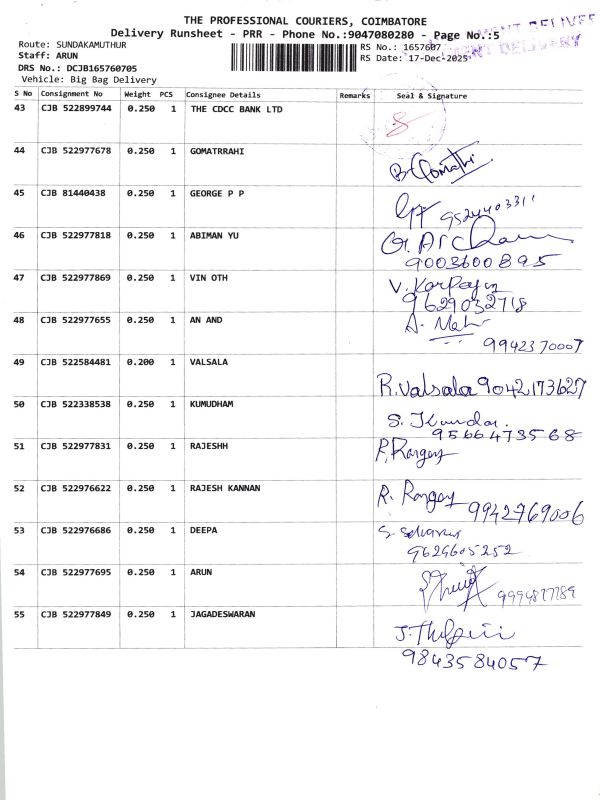 THE PROFESSIONAL COURIERS, COIMBATORE
Delivery Runsheet - PRR - Phone No.:9047080280 - Page No.:5
Route: SUNDAKAMUTHUR
Staff: ARUN
DRS No.: DCJB165760705
Vehicle: Big Bag Delivery
RS No.: 1657607
RS Date: 17-Dec-2025
S No Consignment No Weight PCS Consignee Details Remarks Seal & Signature
43 CJB 522899744 0.250 1 THE CDCC BANK LTD
44 CJB 522977678 0.250 1 GOMATRRAHI B. Gomathi
45 CJB 81440438 0.250 1 GEORGE P P 9524403311
46 CJB 522977818 0.250 1 ABIMAN YU
9003600895
47 CJB 522977869 0.250 1 VIN OTH V.
9629032718
48 CJB 522977655 0.250 1 AN AND A.
9942370007
49 CJB 522584481 0.200 1 VALSALA R.Valsala 9042173627
50 CJB 522338538 0.250 1 KUMUDHAM S.
9566473568
51 CJB 522977831 0.250 1 RAJESHH
52 CJB 522976622 0.250 1 RAJESH KANNAN R. 9942769006
53 CJB 522976686 0.250 1 DEEPA S.
9629605252
54 CJB 522977695 0.250 1 ARUN
55 CJB 522977849 0.250 1 JAGADESWARAN J.
9843584057